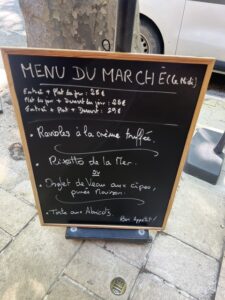 MENU DU MARCHÉ (le Midi)
Entrée + Plat du jour : 25€
Plat du jour + Dessert du jour : 25€
Entrée + Plat + Dessert : 29€
• Ravioles à la crème truffée.
• Risotto de la Mer.
ou
• Onglet de Veau aux cèpes,
purée Maison.
• Tarte aux Abricots.
Bon Appétit!